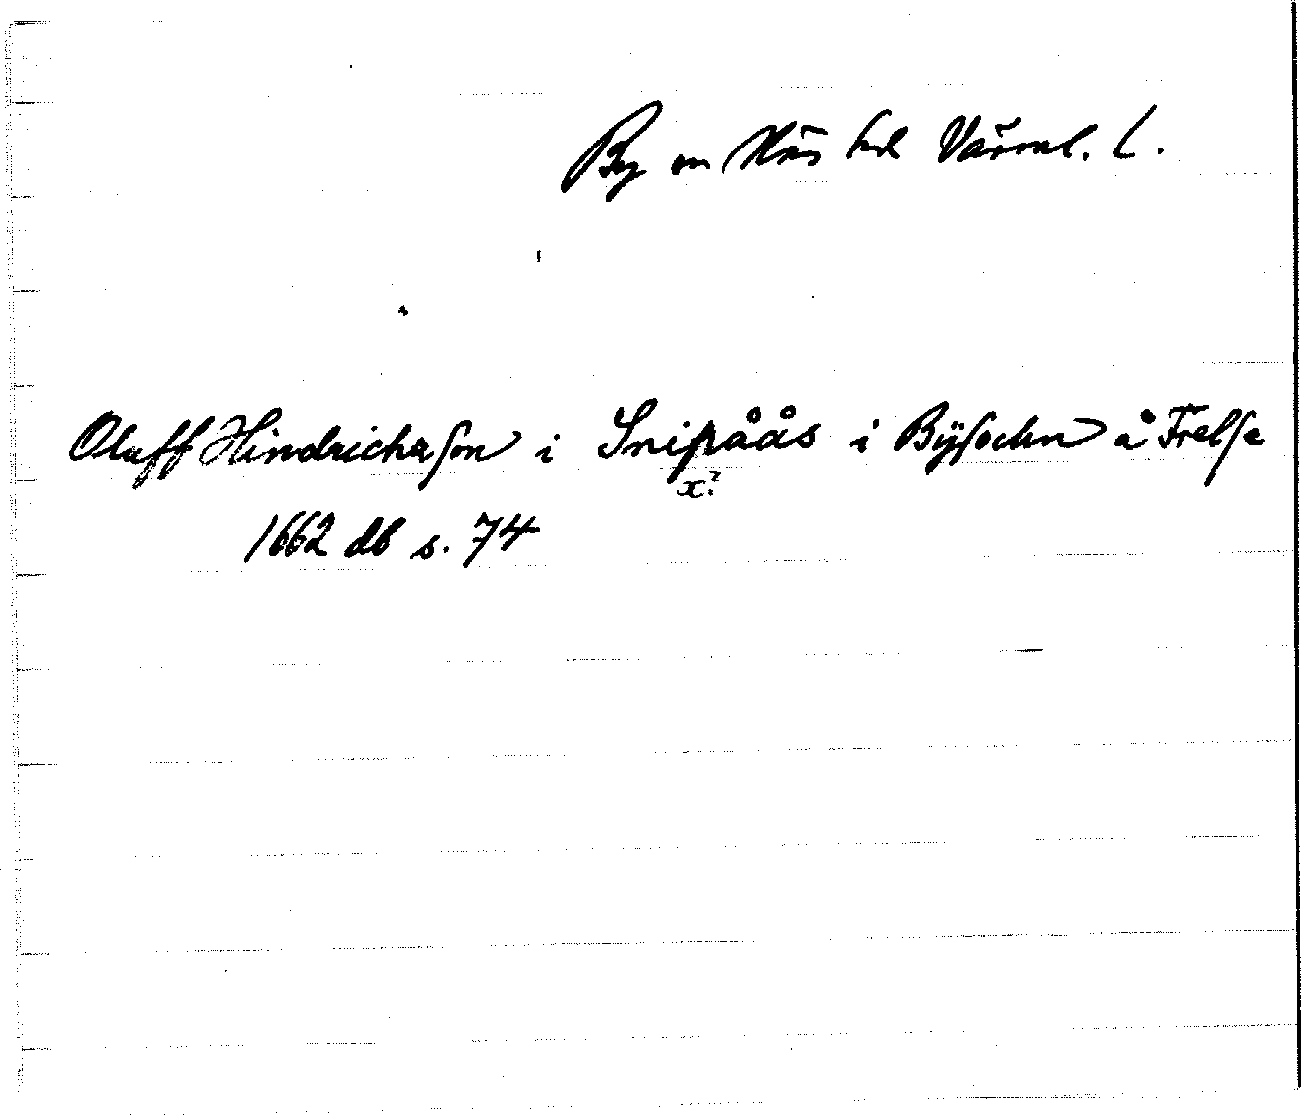 By sn Näs hd Värml. l.
Oluff Hindrichsson i Snipåås i Bÿsochn å Frelse
x?
1662 db s. 74